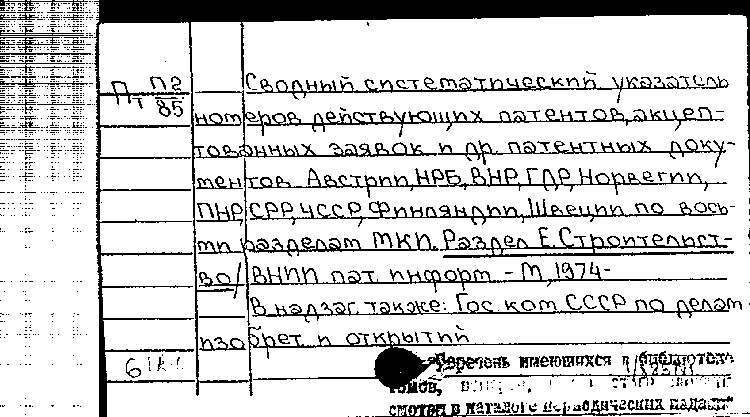 Пт П2/85
Сводный систематический указатель
номеров действующих патентов, акцеп-
тованных заявок и др. патентных доку-
ментов Австрии, НРБ, ВНР, ГДР, Норвегии,
ПНР, СРР, ЧССР, Финляндии, Швеции по вось-
ми разделам МКП. Раздел Е. Строительст-
во/ ВНИИ пат. информ - М, 1974-
В надзаг. также: Гос ком СССР по делам
изобрет и открытий
Перечень имеющихся в библиотеке
томов,
смотри в каталоге периодических изданий